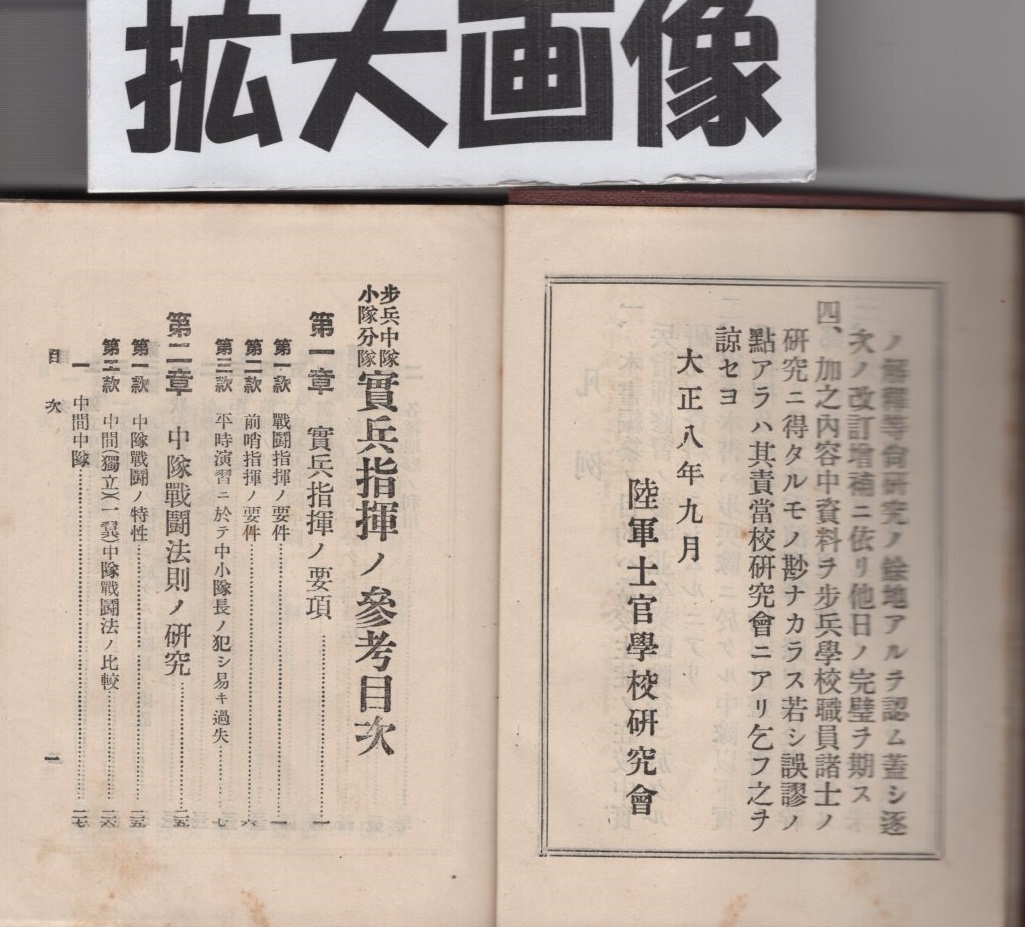 拡大画像
ノ解釋等尙研究ノ餘地アルヲ認ム蓋シ逐
次ノ改訂增補ニ依リ他日ノ完璧ヲ期ス
四、加之內容中資料ヲ步兵學校職員諸士ノ
研究ニ得タルモノ尠ナカラス若シ誤謬ノ
點アラハ其責當校研究會ニアリ乞フ之ヲ
諒セヨ
大正八年九月
陸軍士官學校研究會
步兵中隊
小隊分隊
實兵指揮ノ參考目次
第一章 實兵指揮ノ要項 一
第一款 戰鬪指揮ノ要件 一
第二款 前哨指揮ノ要件 六
第三款 平時演習ニ於テ中小隊長ノ犯シ易キ過失 七
第二章 中隊戰鬪法則ノ研究 二五
第一款 中隊戰鬪ノ特性 二五
第二款 中間(獨立)(一翼)中隊戰鬪法ノ比較 二六
一 中間中隊 二七
目次
一